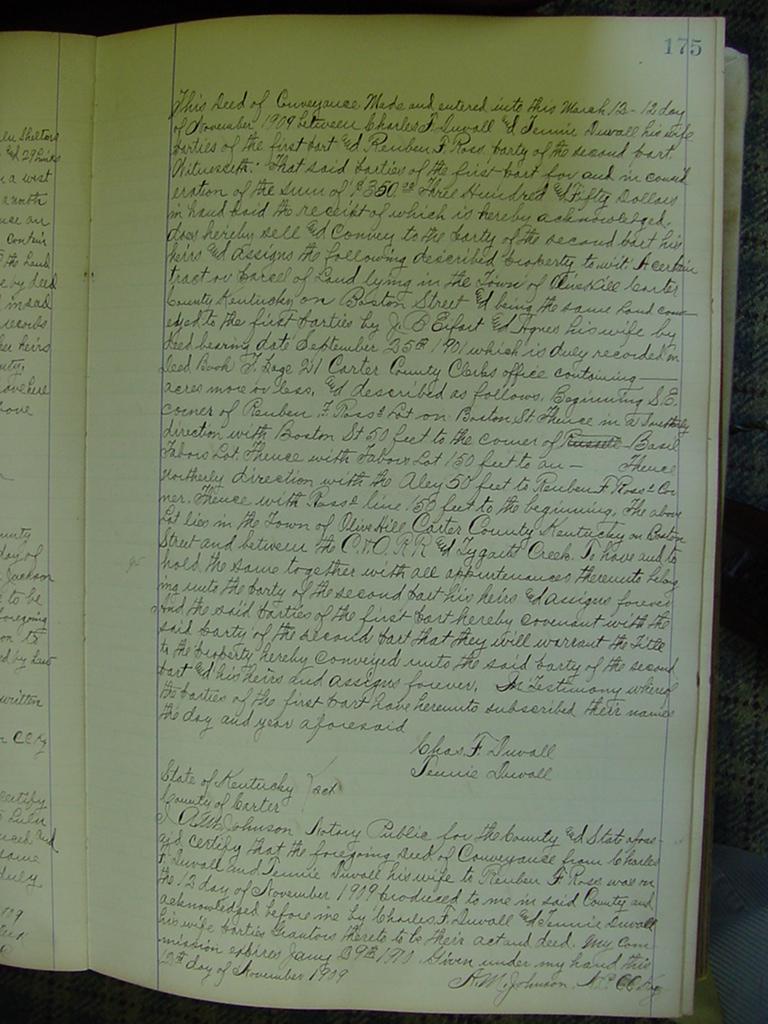 175
This Deed of Conveyance Made and entered into this March 12 - 12 day
of November 1909 between Charles F. Duvall & Tennie Duvall his wife
parties of the first part & Reuben F. Ross party of the second part.
Witnesseth: That said parties of the first part for and in consid
eration of the sum of $350.00 Three Hundred & Fifty Dollars
in hand paid the receipt of which is hereby acknowledged.
does hereby sell & Convey to the party of the second part his
heirs & assigns the following described property to wit: A certain
tract or parcel of Land lying in the Town of Olive Hill Carter
County Kentucky on Boston Street & being the same land conv
eyed to the first parties by J. B Eifort & Agnes his wife by
deed bearing date September 25th 1901 which is duly recorded in
Deed Book F. Page 21 Carter County Clerks office containing —
acres more or less, & described as follows. Beginning S.E.
corner of Reuben F. Ross' Lot on Boston St Thence in a
direction with Boston St 50 feet to the corner of Russell Basil
Tabors Lot Thence with Tabors Lot 150 feet to an — Thence
Northerly direction with the Aley 50 feet to Reuben F. Ross' Cor
ner. Thence with Ross' line 150 feet to the beginning. The above
Lot lies in the Town of Olive Hill Carter County Kentucky on Boston
Street and between the C & O. R R & Tygarts Creek. To have and to
hold the same together with all appurtenances thereunto belong
ing unto the party of the second part his heirs & assigns forever
and the said parties of the first part hereby covenant with the
said party of the second part that they will warrant the Title
to the property hereby conveyed unto the said party of the second
part & his heirs and assigns forever. In Testimony whereof
the parties of the first part have hereunto subscribed their names
the day and year aforesaid
Chas. F. Duvall
Tennie Duvall
State of Kentucky
County of Carter } sct
I A. M. Johnson Notary Public for the County & State afore-
said certify that the foregoing Deed of Conveyance from Charles
F. Duvall and Tennie Duvall his wife to Reuben F. Ross was on
the 12 day of November 1909 produced to me in said County and
acknowledged before me by Charles F. Duvall & Tennie Duvall
his wife parties Grantors thereto to be their act and deed. My com
mission expires Jany 29th 1910. Given under my hand this
12th day of November 1909
A. M. Johnson. N.P. C.C. Ky